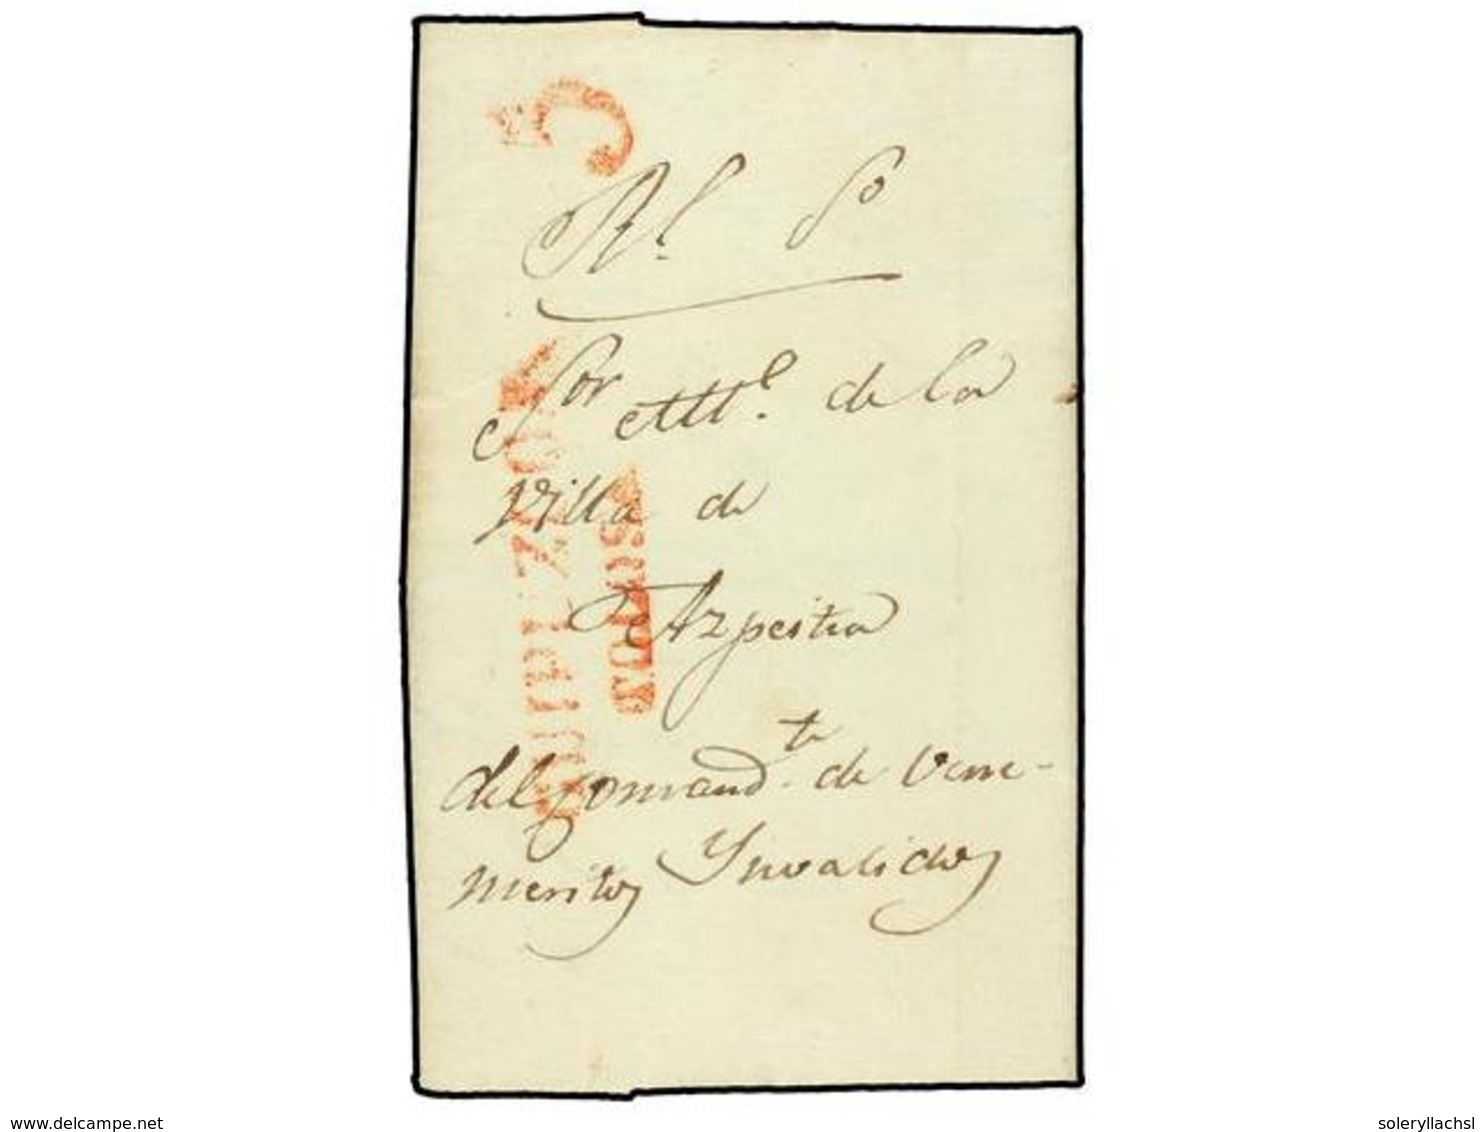 5
Rl. So
Sor All.e de la
Villa de
Azpeitia
del Comand.te de Vene-
meritos Ynvalidos
GUIPUZCOA
www.delcampe.net
soleryllachsl